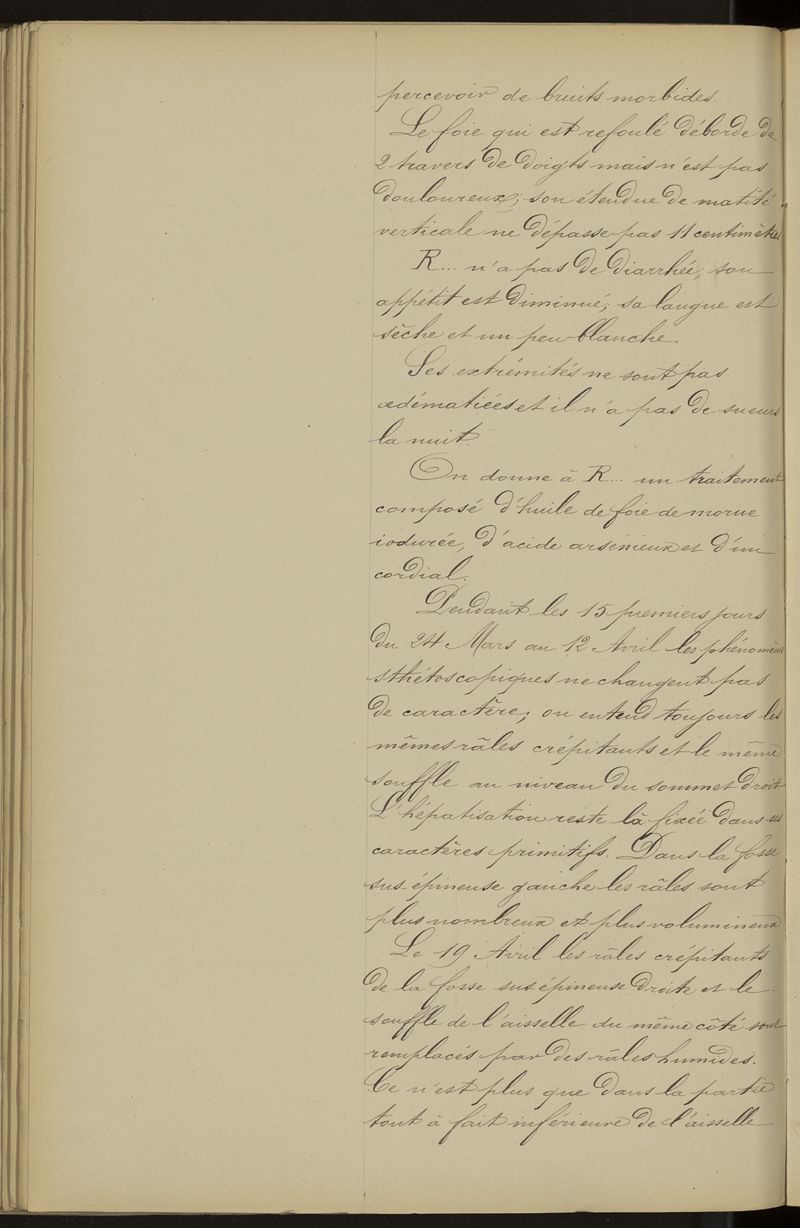 percevoir de bruits morbides.
Le foie qui est refoulé déborde de
2 travers de doigts mais n'est pas
douloureux; son étendue de matité
verticale ne dépasse pas 11 centimètres
R... n'a pas de diarrhée, son
appétit est diminué; sa langue est
sèche et un peu blanche.
Ses extrémités ne sont pas
œdématiées et il n'a pas de sueurs
la nuit.
On donne à R... un traitement
composé d'huile de foie de morue
iodurée, d'acide arsénieux et d'un
cordial.
Pendant les 15 premiers jours
du 24 Mars au 12 Avril les phénomènes
sthétoscopiques ne changent pas
de caractère; on entend toujours les
mêmes râles crépitants et le même
souffle au niveau du sommet droit
L'hépatisation reste là fixée dans ses
caractères primitifs. Dans la fosse
sus épineuse gauche les râles sont
plus nombreux et plus volumineux
Le 19 Avril les râles crépitants
de la fosse sus épineuse droite et le
souffle de l'aisselle du même côté sont
remplacés par des râles humides.
Ce n'est plus que dans la partie
tout à fait inférieure de l'aisselle